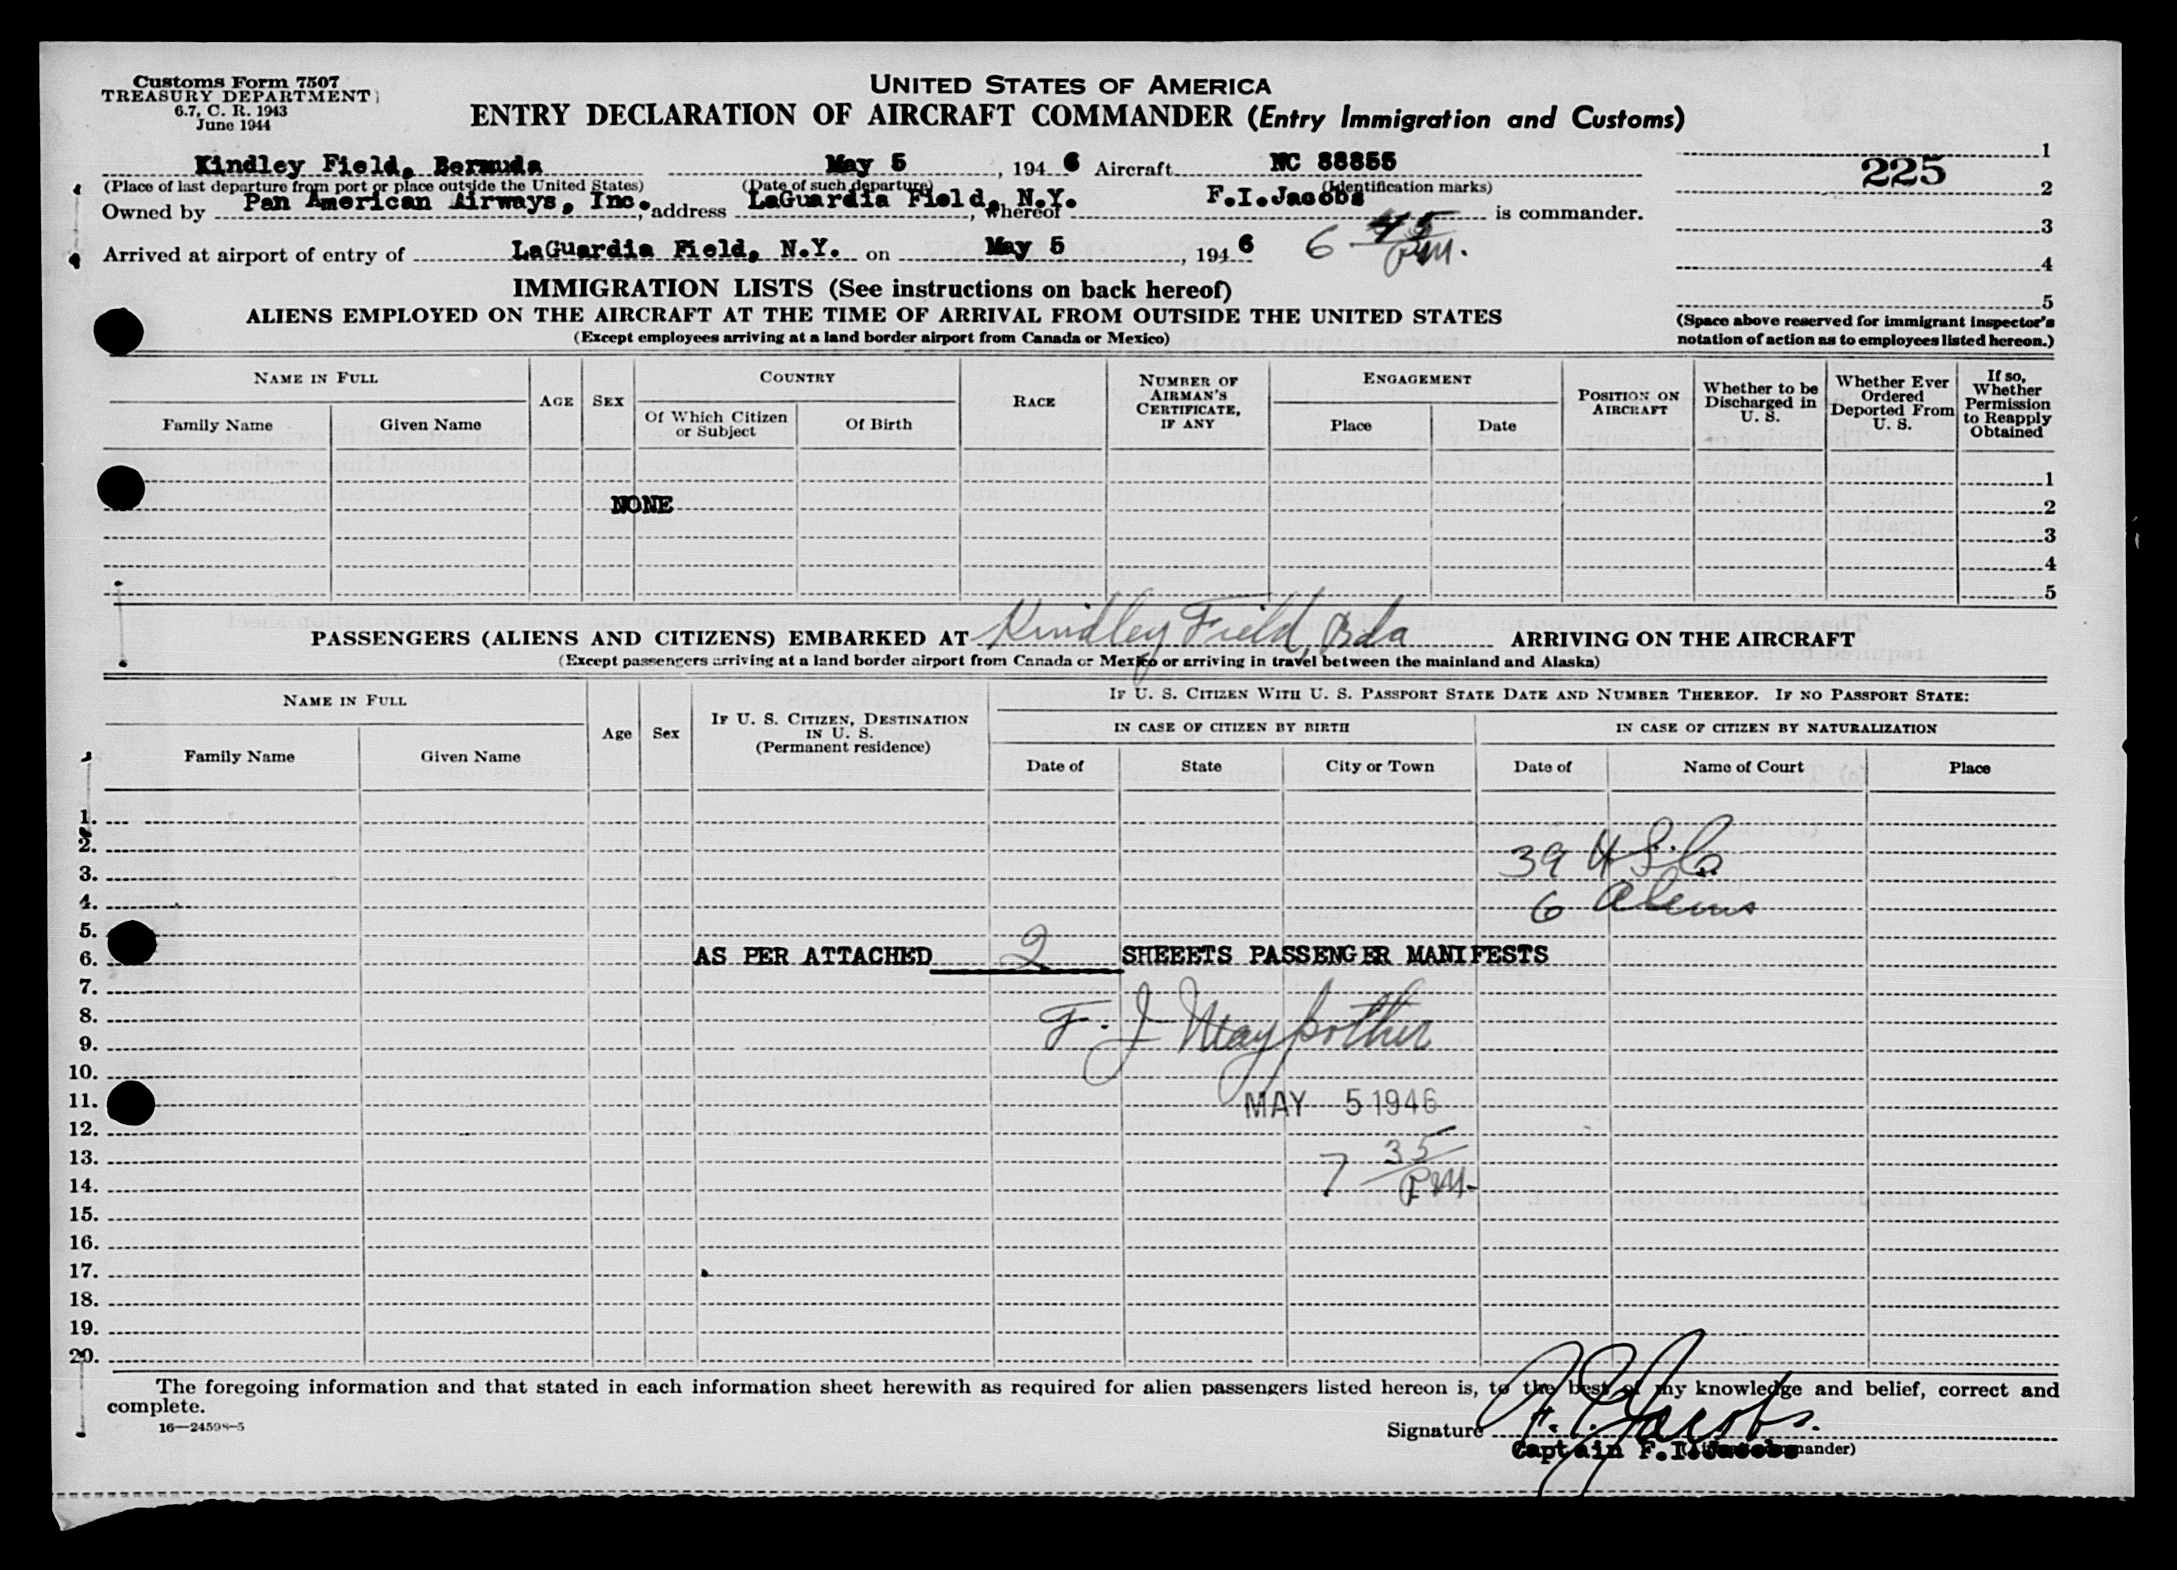 Customs Form 7507
TREASURY DEPARTMENT
6.7, C. R. 1943
June 1944
UNITED STATES OF AMERICA
ENTRY DECLARATION OF AIRCRAFT COMMANDER (Entry Immigration and Customs)
Kindley Field, Bermuda May 5, 1946 Aircraft NC 88855
(Place of last departure from port or place outside the United States) (Date of such departure) (Identification marks)
Owned by Pan American Airways, Inc., address LaGuardia Field, N.Y., whereof F.I.Jacobs is commander.
Arrived at airport of entry of LaGuardia Field, N.Y. on May 5, 1946 6 45 PM.
1
225
2
3
4
5
(Space above reserved for immigrant inspector's
notation of action as to employees listed hereon.)
IMMIGRATION LISTS (See instructions on back hereof)
ALIENS EMPLOYED ON THE AIRCRAFT AT THE TIME OF ARRIVAL FROM OUTSIDE THE UNITED STATES
(Except employees arriving at a land border airport from Canada or Mexico)
NAME IN FULL
Family Name Given Name
AGE SEX
COUNTRY
Of Which Citizen or Subject Of Birth
RACE
NUMBER OF AIRMAN'S CERTIFICATE, IF ANY
ENGAGEMENT
Place Date
POSITION ON AIRCRAFT
Whether to be Discharged in U. S.
Whether Ever Ordered Deported From U. S.
If so, Whether Permission to Reapply Obtained
1
NONE 2
3
4
5
PASSENGERS (ALIENS AND CITIZENS) EMBARKED AT Kindley Field, Bda ARRIVING ON THE AIRCRAFT
(Except passengers arriving at a land border airport from Canada or Mexico or arriving in travel between the mainland and Alaska)
NAME IN FULL
Family Name Given Name
Age Sex
IF U. S. CITIZEN, DESTINATION IN U. S.
(Permanent residence)
IF U. S. CITIZEN WITH U. S. PASSPORT STATE DATE AND NUMBER THEREOF. IF NO PASSPORT STATE:
IN CASE OF CITIZEN BY BIRTH IN CASE OF CITIZEN BY NATURALIZATION
Date of State City or Town Date of Name of Court Place
1.
2.
3. 39 U.S.C.
4. 6 Aliens
5.
6. AS PER ATTACHED 2 SHEEETS PASSENGER MANIFESTS
7.
8.
9. F. J Maypother
10.
11. MAY 5 1946
12.
13.
14. 7 35 PM.
15.
16.
17.
18.
19.
20.
The foregoing information and that stated in each information sheet herewith as required for alien passengers listed hereon is, to the best of my knowledge and belief, correct and
complete.
16—24598-5
Signature F. I. Jacobs.
Captain F.I.Jacobs